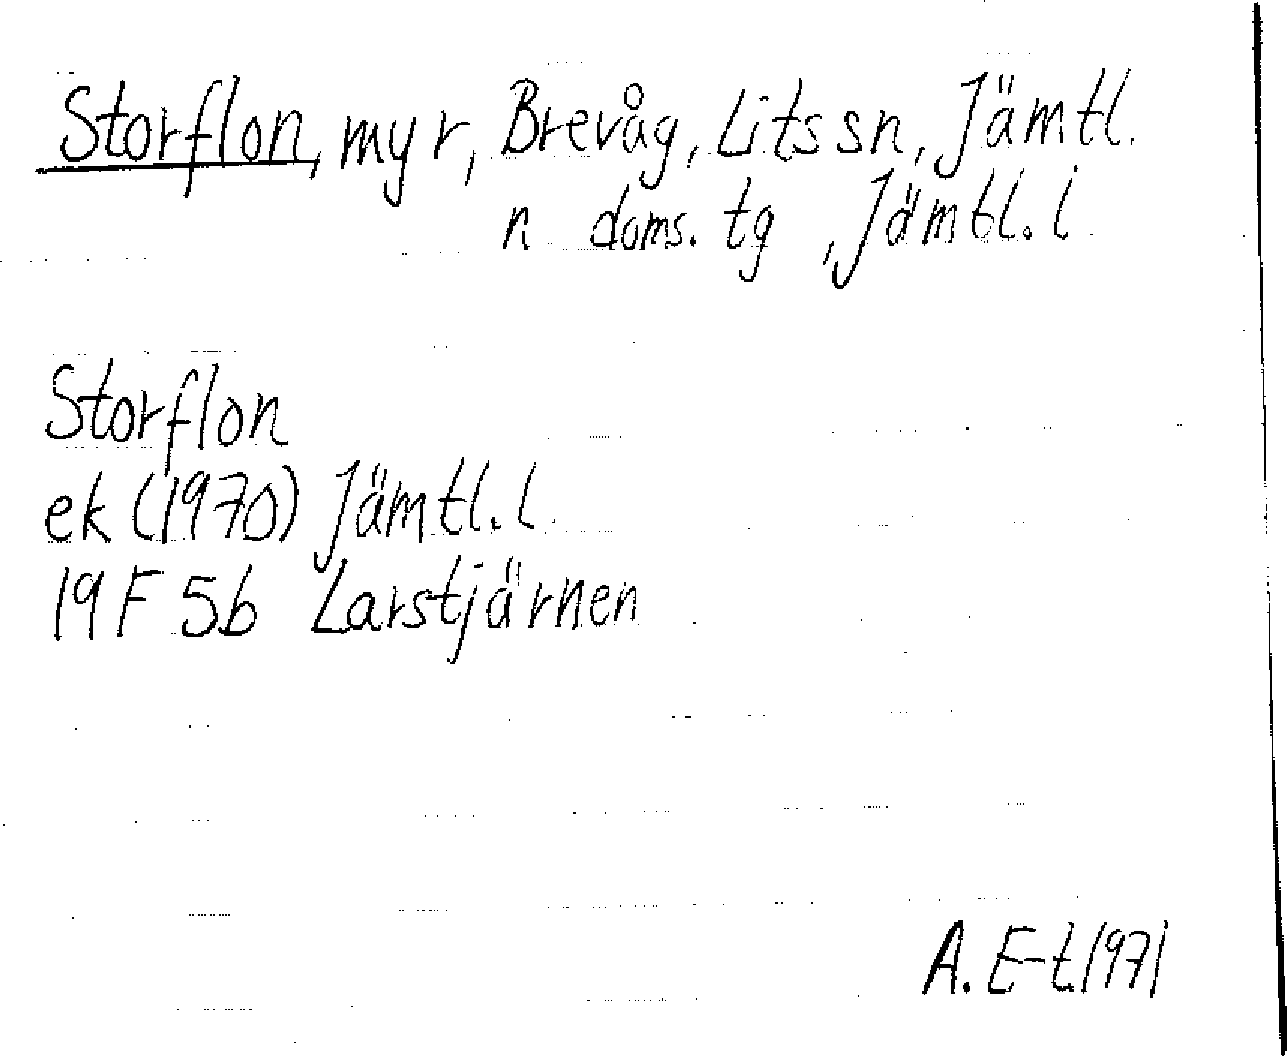 Storflon, myr, Brevåg, Lits sn, Jämtl.
n doms. tg, Jämtl. l
Storflon
ek (1970) Jämtl. l.
19 F 5b Larstjärnen
A. E-t. 1971